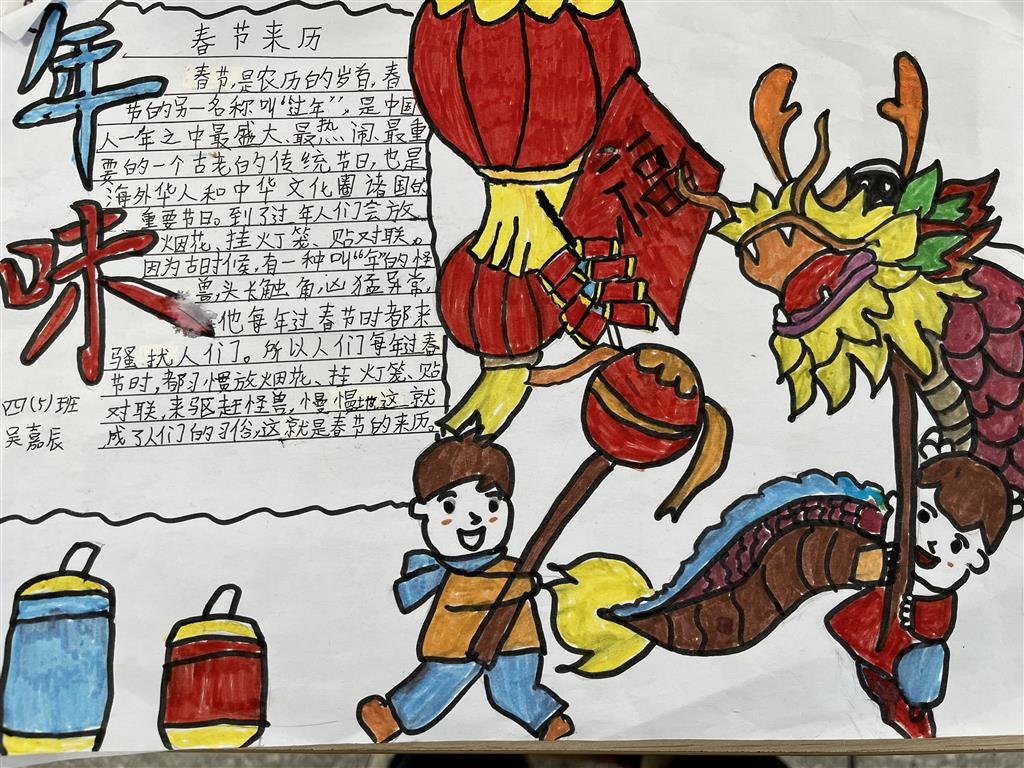 年味
春节来历
春节,是农历的岁首,春
节的另一名称叫“过年”,是中国
人一年之中最盛大、最热闹、最重
要的一个古老的传统节日,也是
海外华人和中华文化圈诸国的
重要节日。到了过年人们会放
烟花、挂灯笼、贴对联。
因为古时候,有一种叫“年”的怪
兽,头长触角,凶猛异常,
他每年过春节时都来
骚扰人们。所以人们每年过春
节时,都习惯放烟花、挂灯笼、贴
对联,来驱赶怪兽,慢慢地这就
成了人们的习俗,这就是春节的来历。
四(5)班
吴嘉辰
福